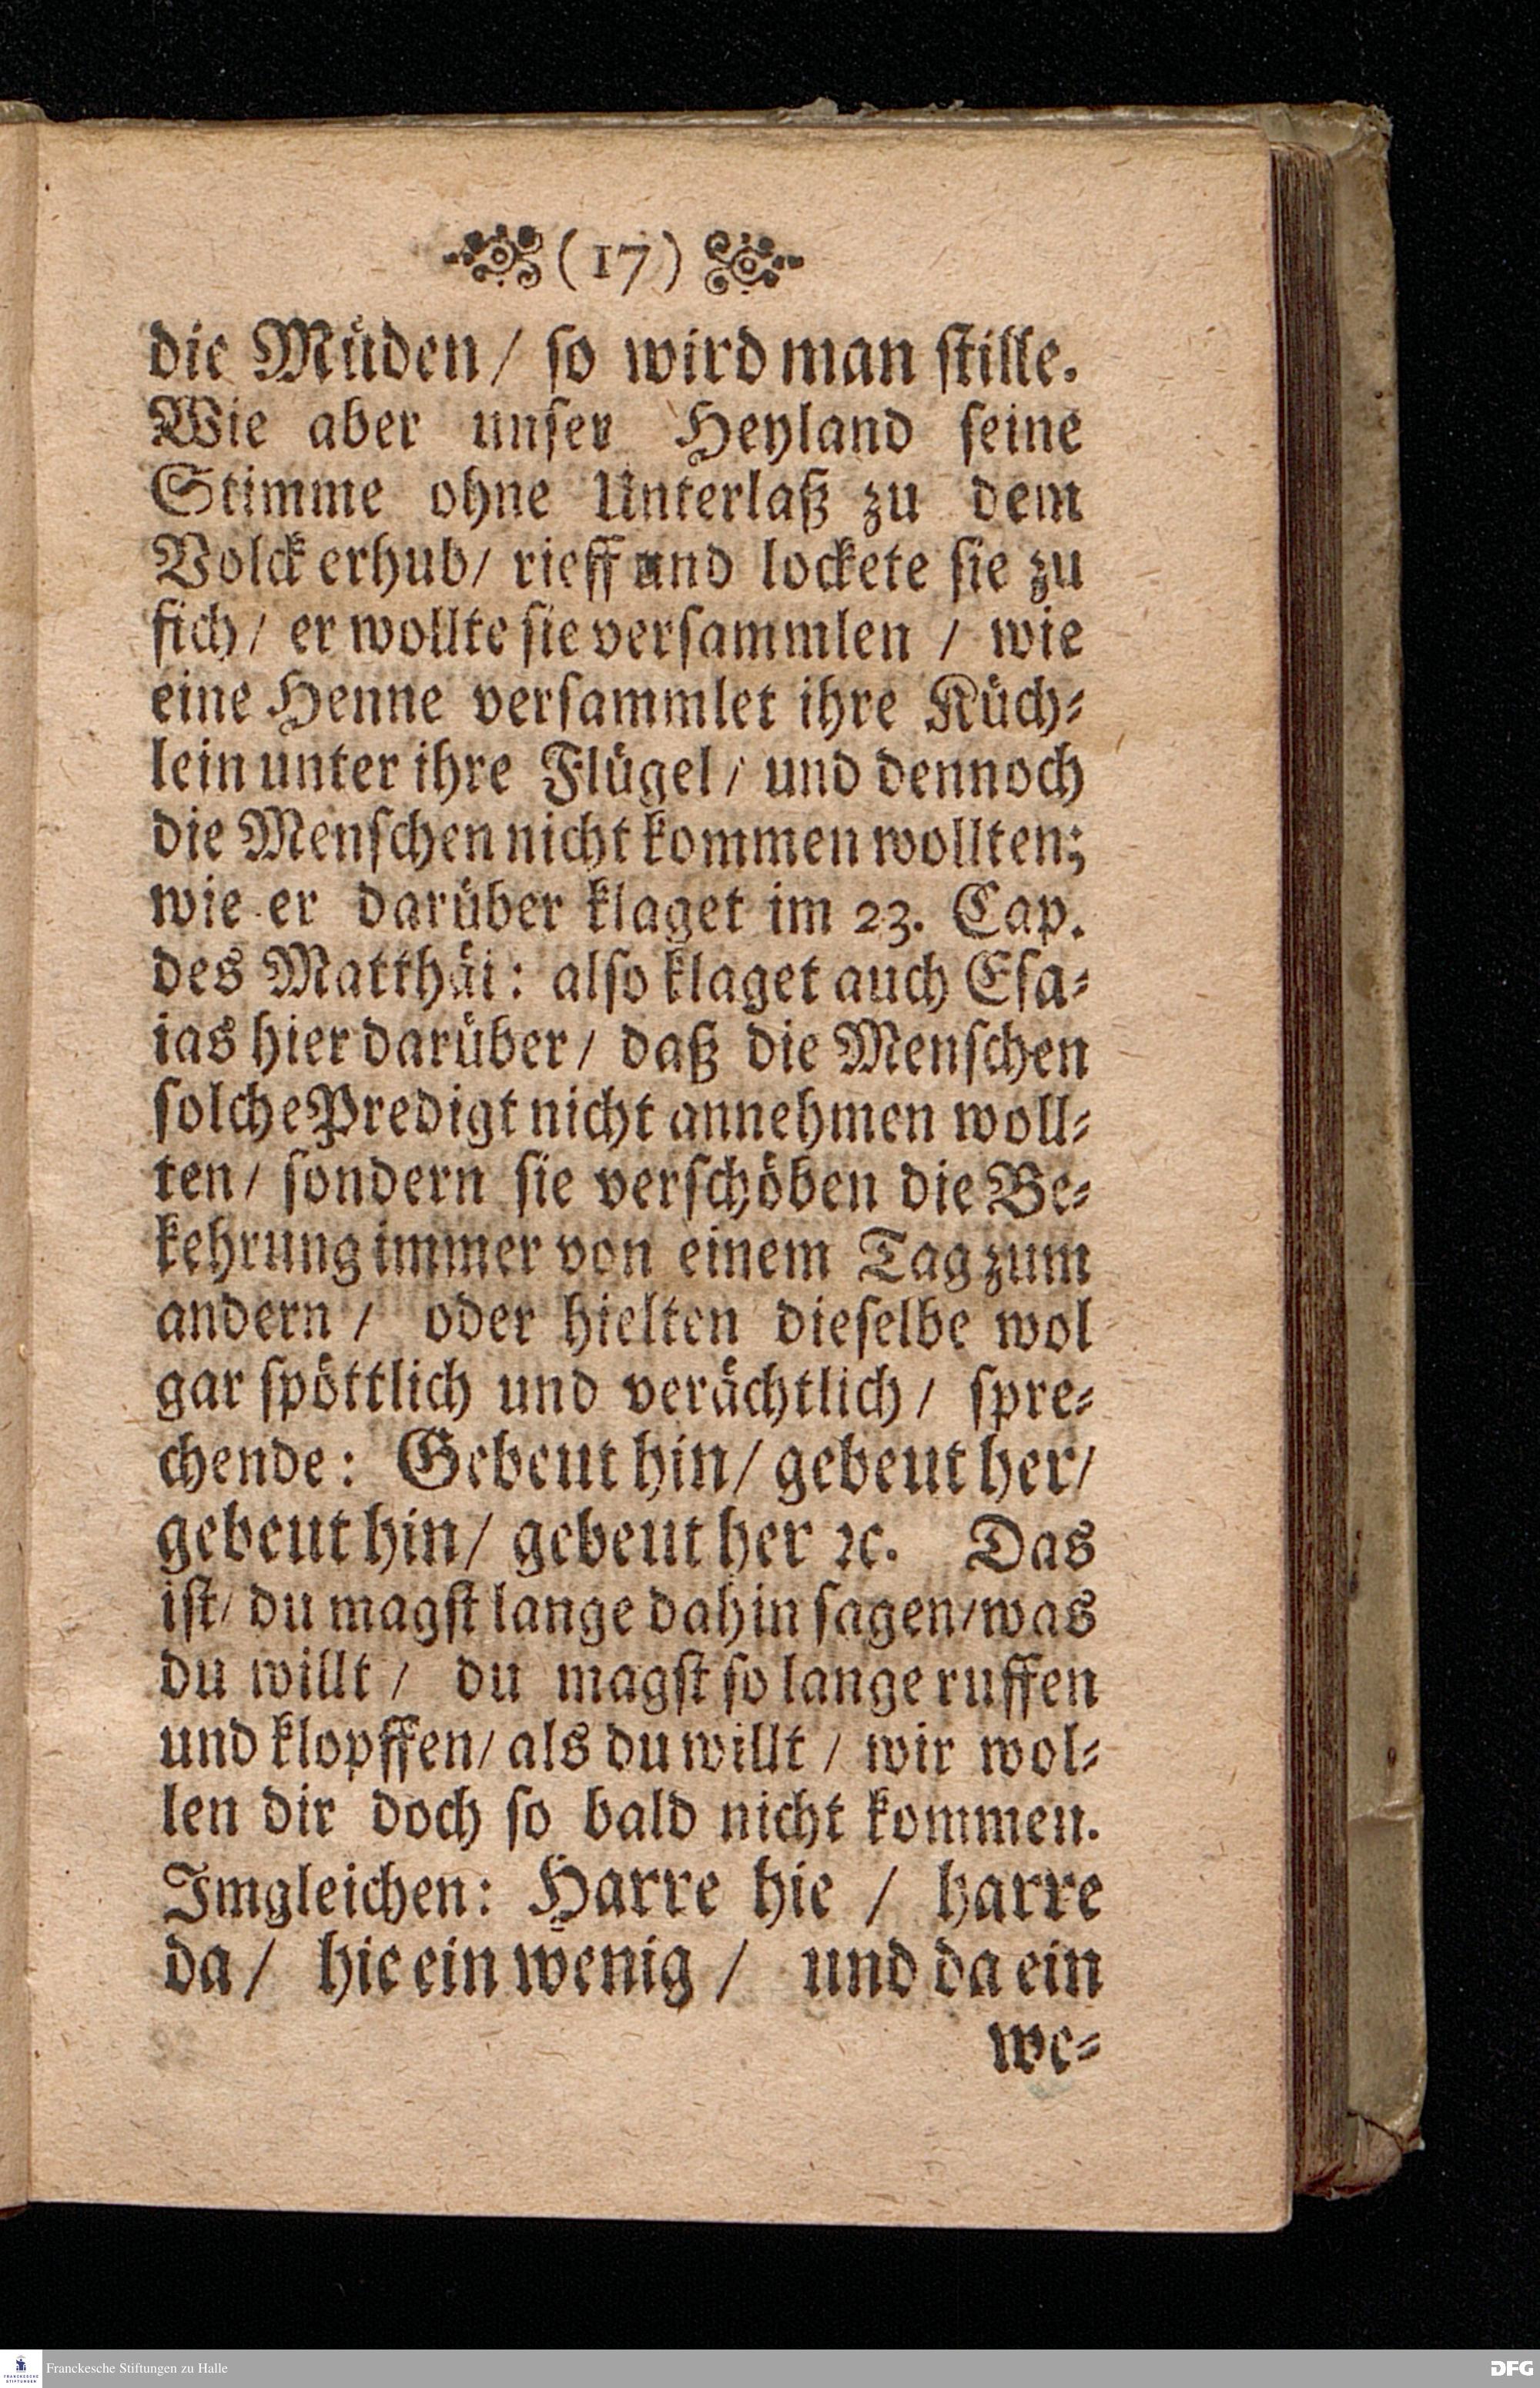 (17)
die Müden/ so wird man stille.
Wie aber unser Heyland seine
Stimme ohne Unterlaß zu dem
Volck erhub/ rieff und lockete sie zu
sich/ er wollte sie versammlen / wie
eine Henne versammlet ihre Küch-
lein unter ihre Flügel/ und dennoch
die Menschen nicht kommen wollten;
wie er darüber klaget im 23. Cap.
des Matthäi: also klaget auch Esa-
ias hier darüber/ daß die Menschen
solche Predigt nicht annehmen woll-
ten/ sondern sie verschöben die Be-
kehrung immer von einem Tag zum
andern / oder hielten dieselbe wol
gar spöttlich und verächtlich/ spre-
chende: Gebeut hin/ gebeut her/
gebeut hin/ gebeut her ꝛc. Das
ist/ du magst lange dahin sagen/was
du willt / du magst so lange ruffen
und klopffen/ als du willt / wir wol-
len dir doch so bald nicht kommen.
Imgleichen: Harre hie / harre
da/ hie ein wenig / und da ein
we-
Franckesche Stiftungen zu Halle
FRANCKESCHE
STIFTUNGEN
DFG